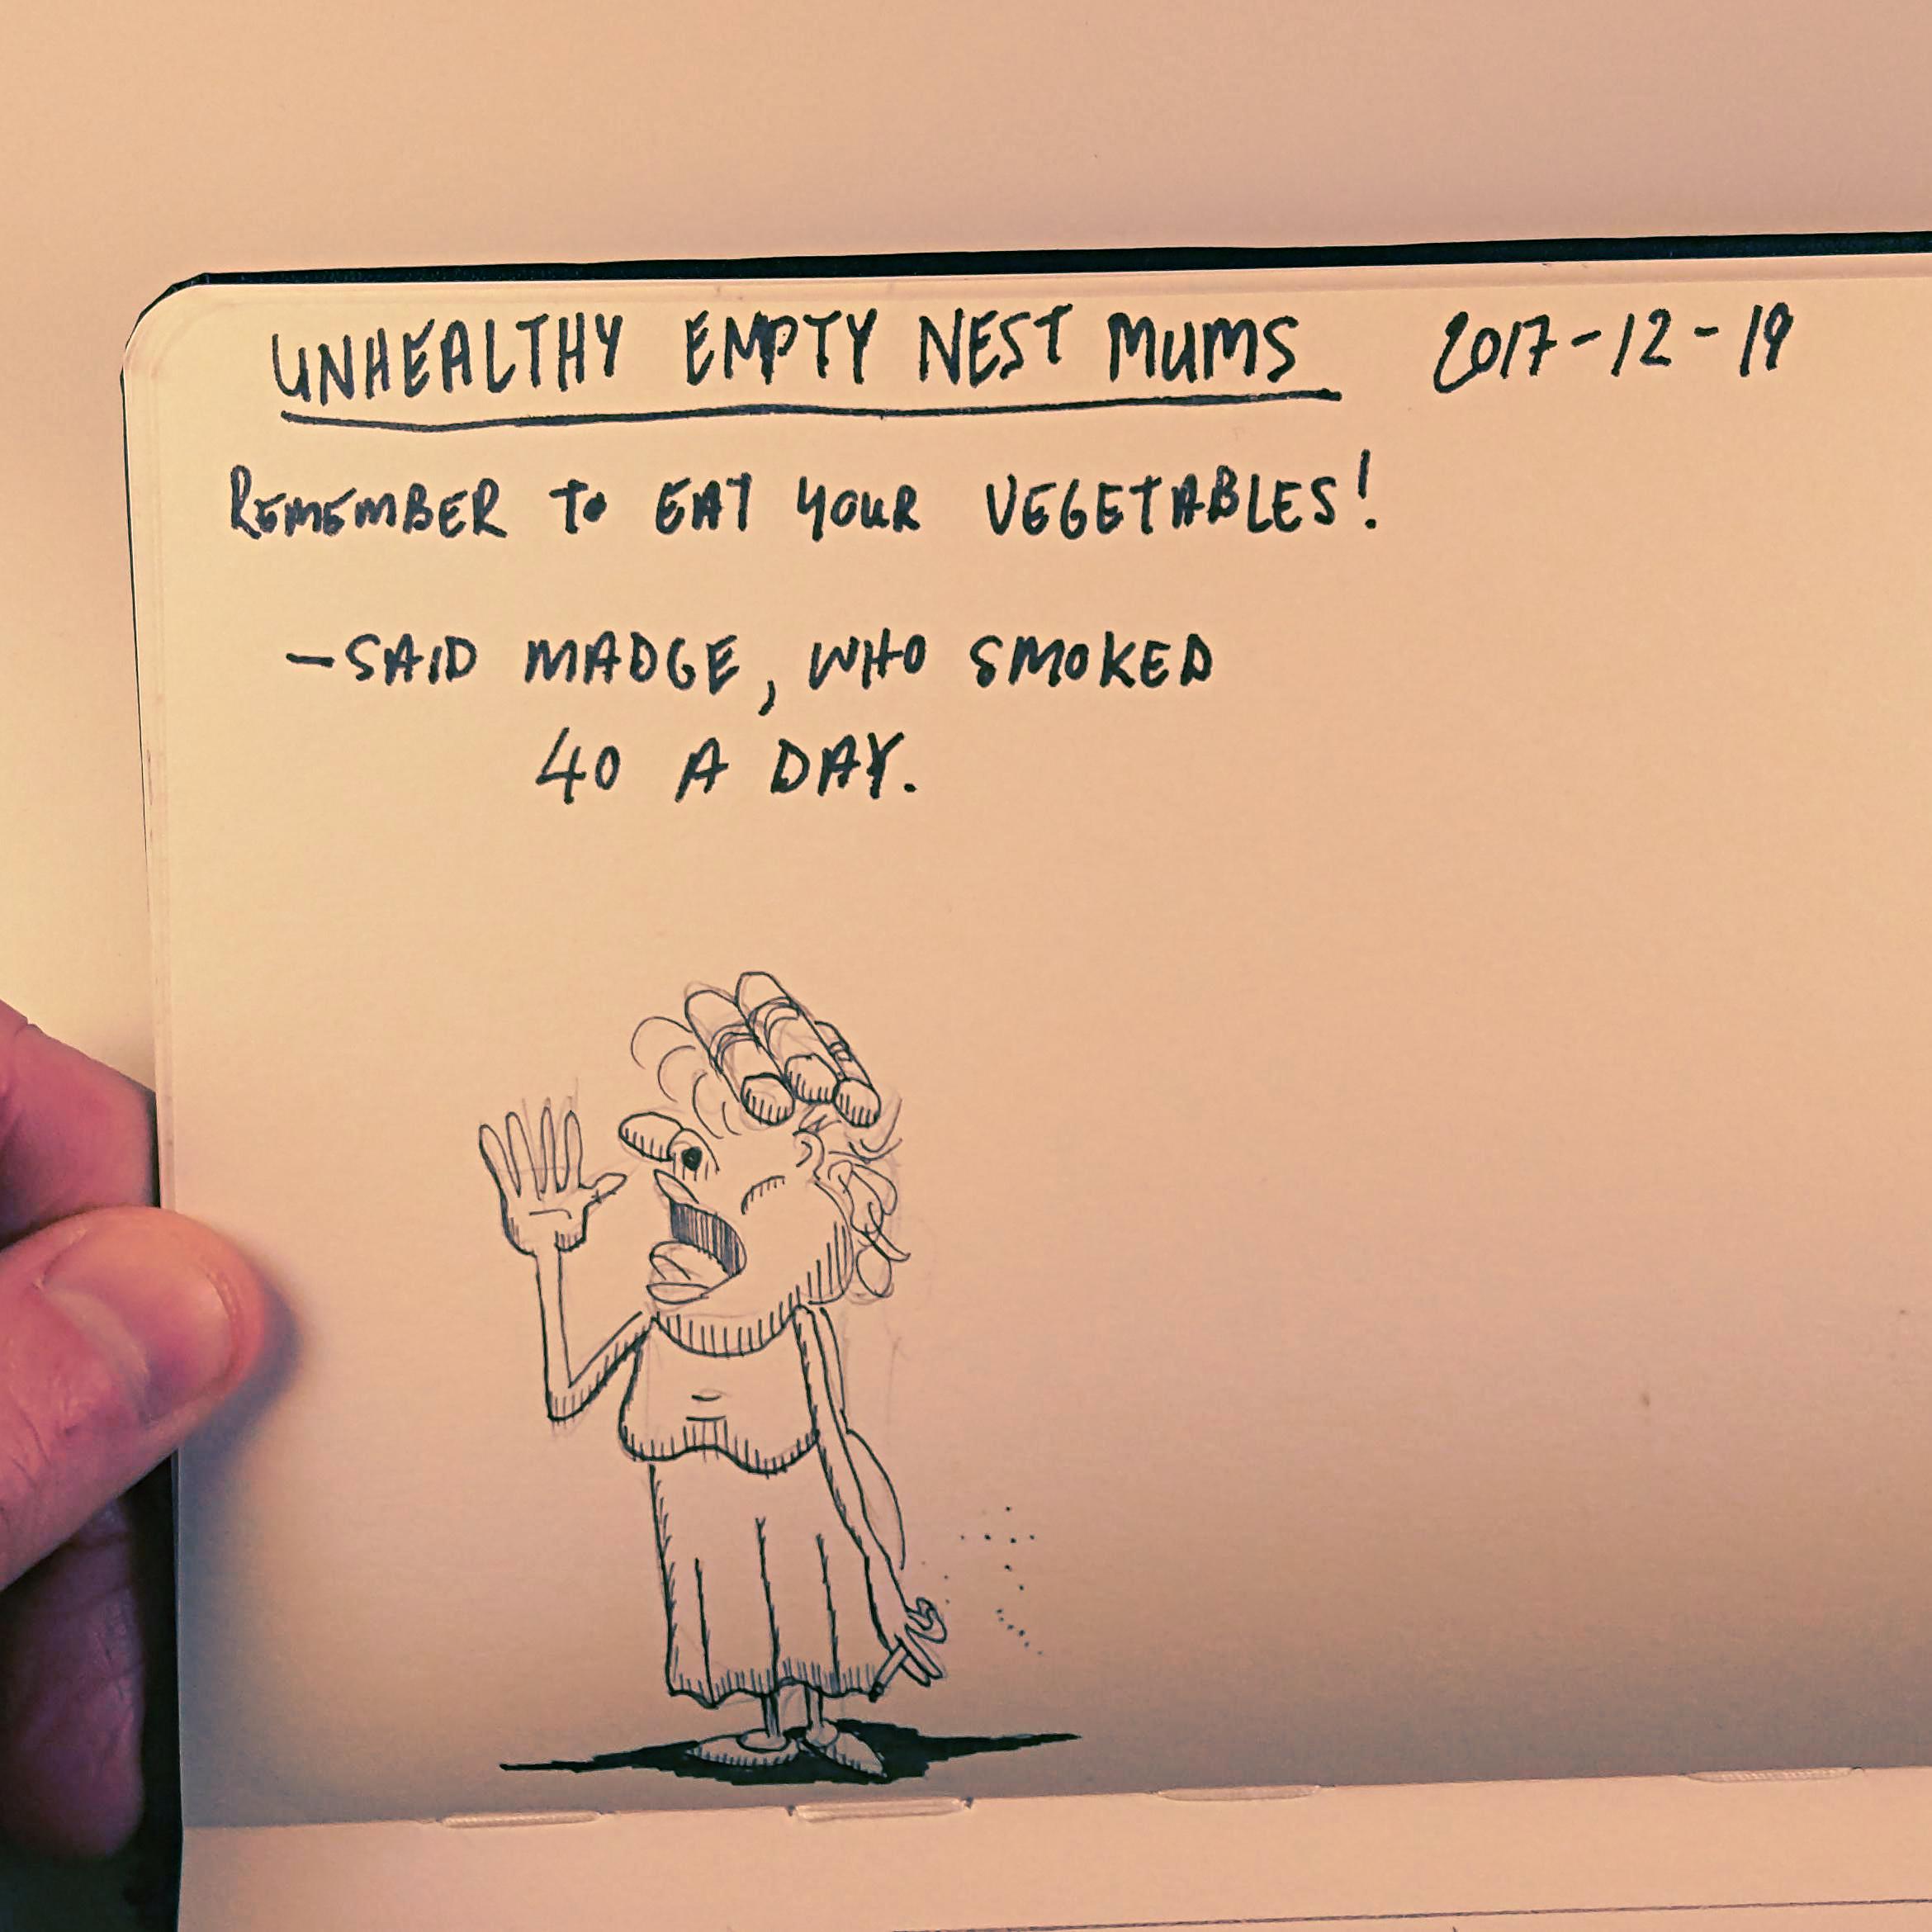 UNHEALTHY EMPTY NEST MUMS 2017-12-19
REMEMBER TO EAT YOUR VEGETABLES!
-SAID MADGE, WHO SMOKED
40 A DAY.